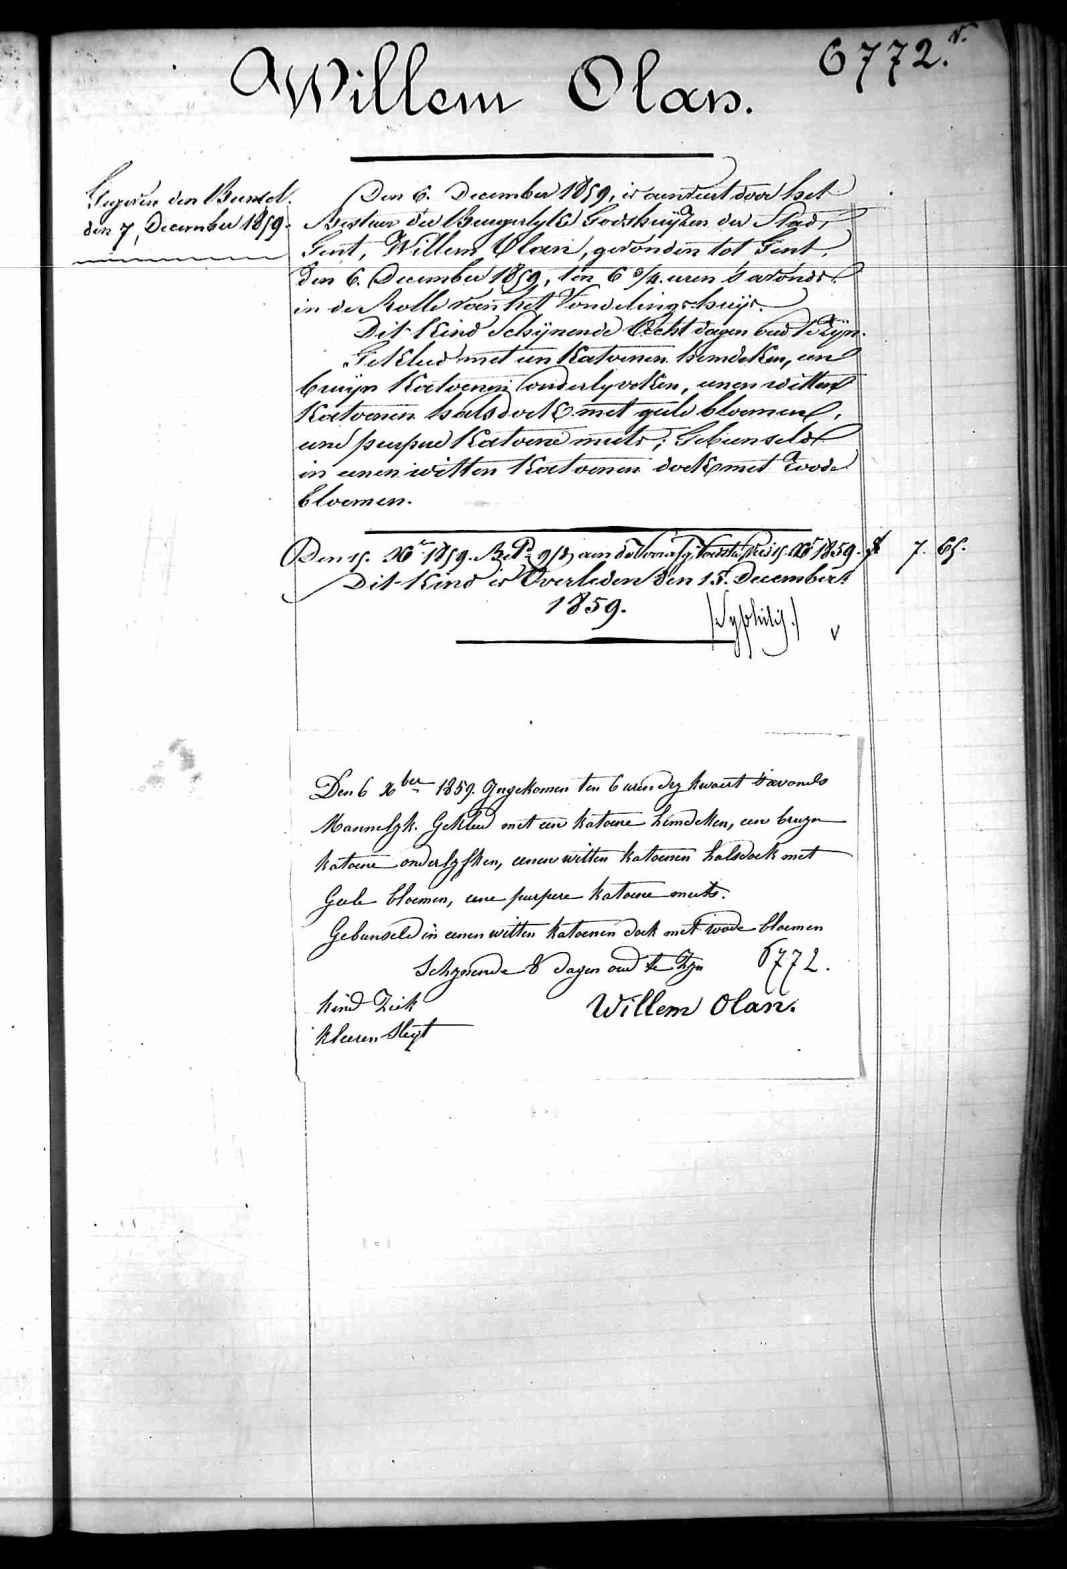 6772.
Willem Olan.
Gegeven den Bunsel
den 7, December 1859.
Den 6. December 1859, is aenveert door het
Bestuer der Burgerlyke Godshuyzen der Stad,
Gent, Willem Olan, gevonden tot Gent,
den 6. December 1859, ten 6 3/4 uren s'avonds
in de Rolle van het Vondelingshuys.
Dit Kind Schynende Acht dagen oud te Zyn.
Gekleed met een Katoenen hemdeken, een
bruyn Katoenen onderlyveken, eenen witten
Katoenen halsdoek met geele bloemen,
eene purpere Katoene muts; Gebunseld
in eenen witten Katoenen doek met roode
bloemen.
Den 15. Xr 1859. Bet. aen de 15. Xr 1859. 7. 65.
Dit Kind is Overleden den 15. December
1859.
(Syphilis.)
v
Den 6 Xber 1859. Ingekomen ten 6 uren dry kwaert s'avonds
Mannelyk. Gekleed met een katoene hemdeken, een bruyn
katoene onderlyfken, eenen witten katoenen halsdoek met
Geele bloemen, eene purpere katoene muts.
Gebunseld in eenen witten katoenen doek met roode bloemen
Schynende 8 dagen oud te Zyn
6772.
Kind Ziek
Willem Olan.
Kleeren Slegt